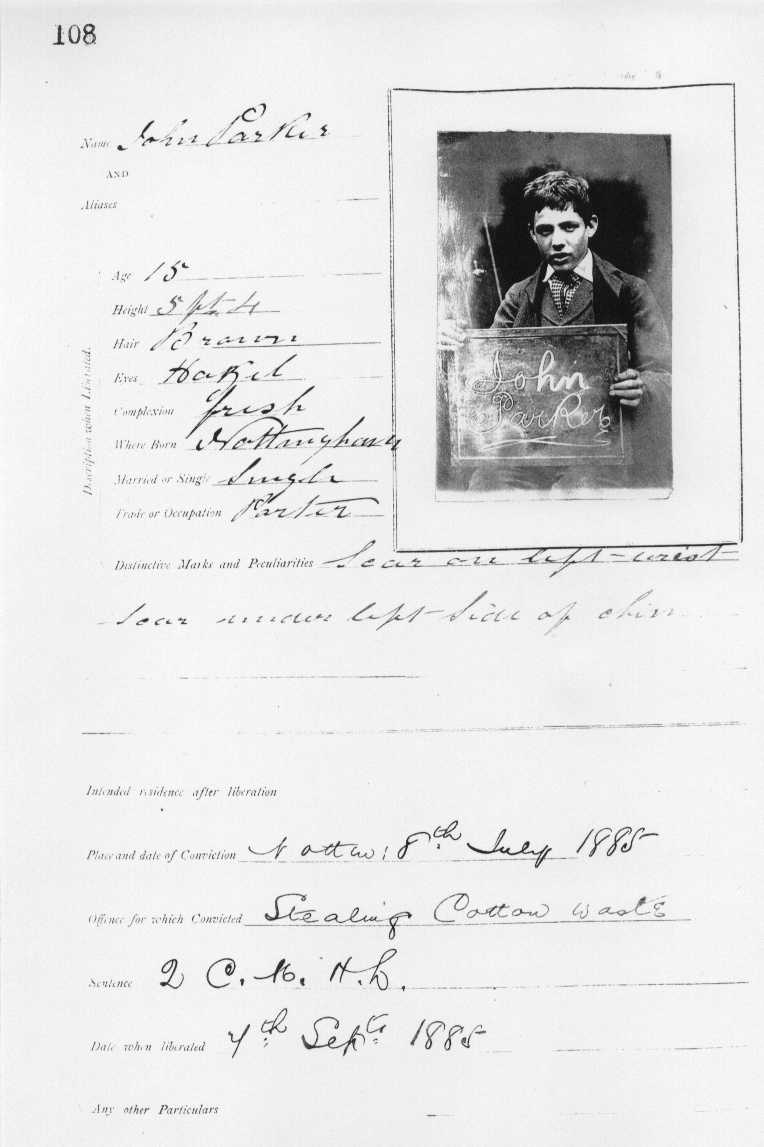 108
Name John Parker
AND
Aliases
Description when Liberated.
Age 15
Height 5 ft. 4
Hair Brown
Eyes Hazel
Complexion fresh
Where Born Nottingham
Married or Single Single
Trade or Occupation Porter
John
Parker
Distinctive Marks and Peculiarities Scar on left wrist
Scar under left side of chin
Intended residence after liberation
Place and date of Conviction 8th July 1885
Offence for which Convicted Stealing Cotton waste
Sentence 2 C. M. H. L.
Date when liberated 7th Septr. 1885
Any other Particulars